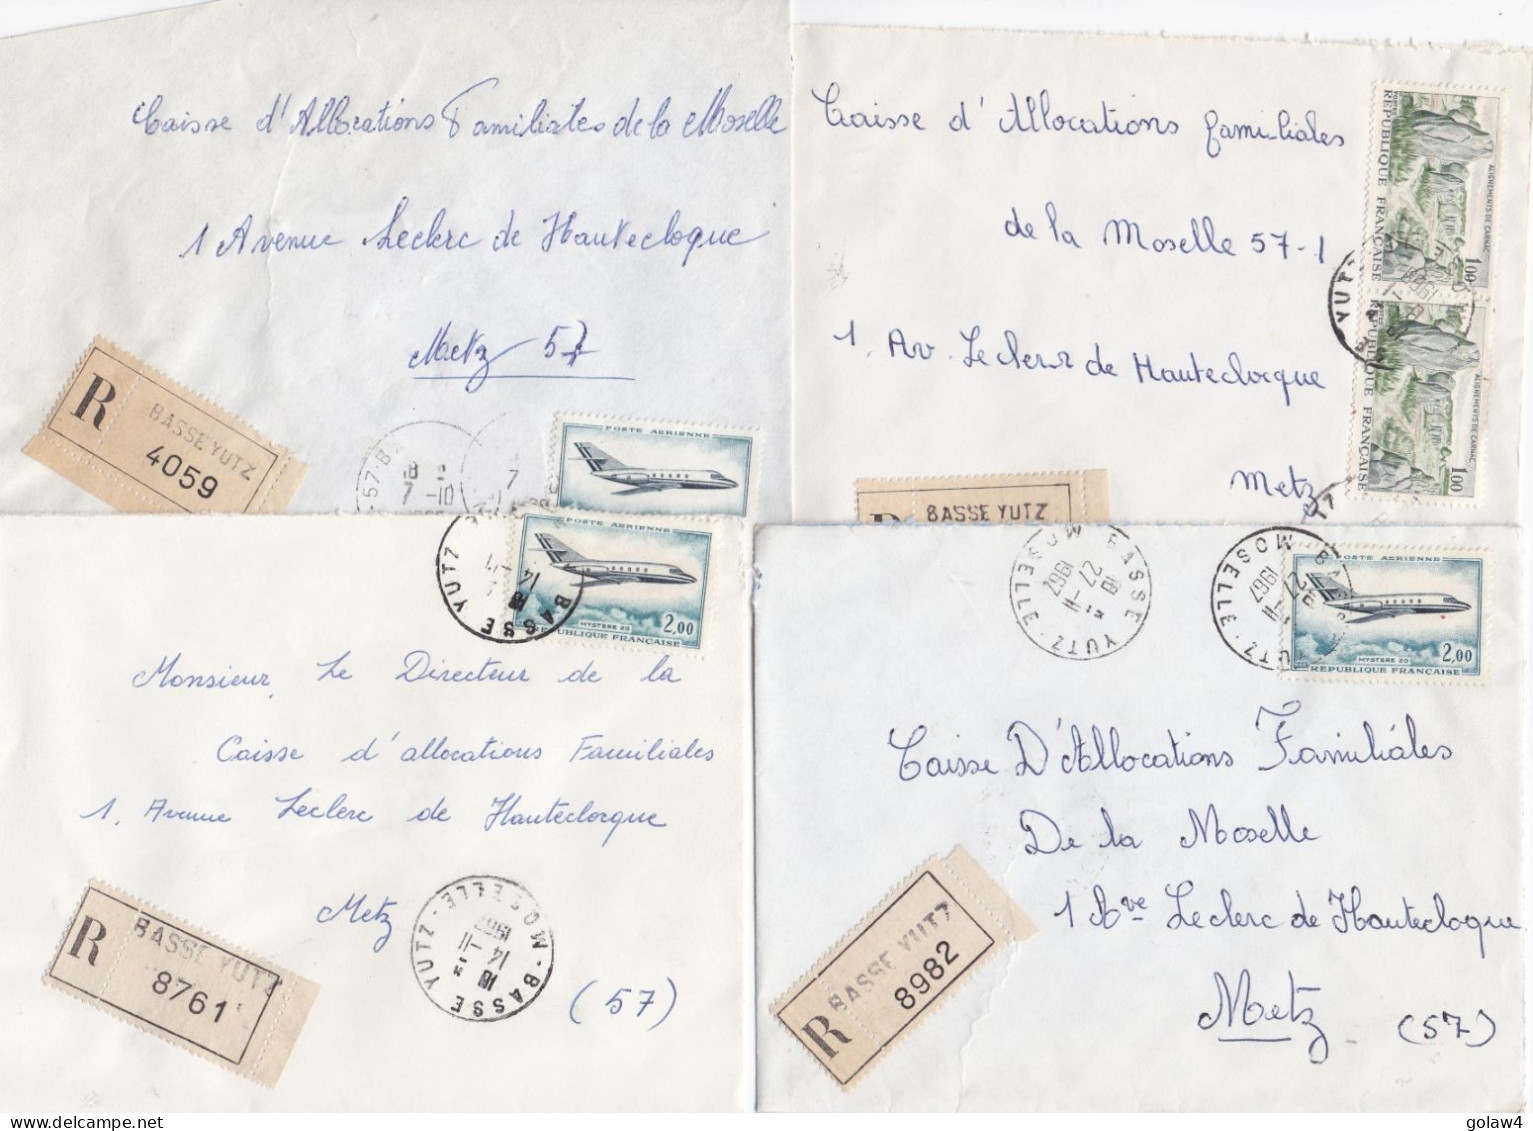 Caisse d'Allocations Familiales de la Moselle
1 Avenue Leclerc de Hautecloque
Metz 57
R
BASSE YUTZ
4059
57-B
18
7 -10
7
POSTE AERIENNE
Caisse d'Allocations familiales
de la Moselle 57-1
1. Av. Leclerc de Hauteclocque
Metz
BASSE YUTZ
ALIGNEMENTS DE CARNAC
1,00
REPUBLIQUE FRANÇAISE
YUTZ
ALIGNEMENTS DE CARNAC
1,00
REPUBLIQUE FRANÇAISE
POSTE AERIENNE
MYSTERE 20
2,00
REPUBLIQUE FRANÇAISE
BASSE YUTZ
14
Monsieur, Le Directeur de la
Caisse d'allocations Familiales
1. Avenue Leclerc de Hauteclorque
Metz
(57)
R
BASSE YUTZ
8761
BASSE YUTZ · MOSELLE
18
14 -11
1967
BASSE YUTZ · MOSELLE
18
27 -11
1967
MOSELLE
27 -11
1967
POSTE AERIENNE
MYSTERE 20
2,00
REPUBLIQUE FRANÇAISE
Caisse D'Allocations Familiales
De la Moselle
1 Ave Leclerc de Hautecloque
Metz (57)
R
BASSE YUTZ
8982
delcampe.net
golaw4